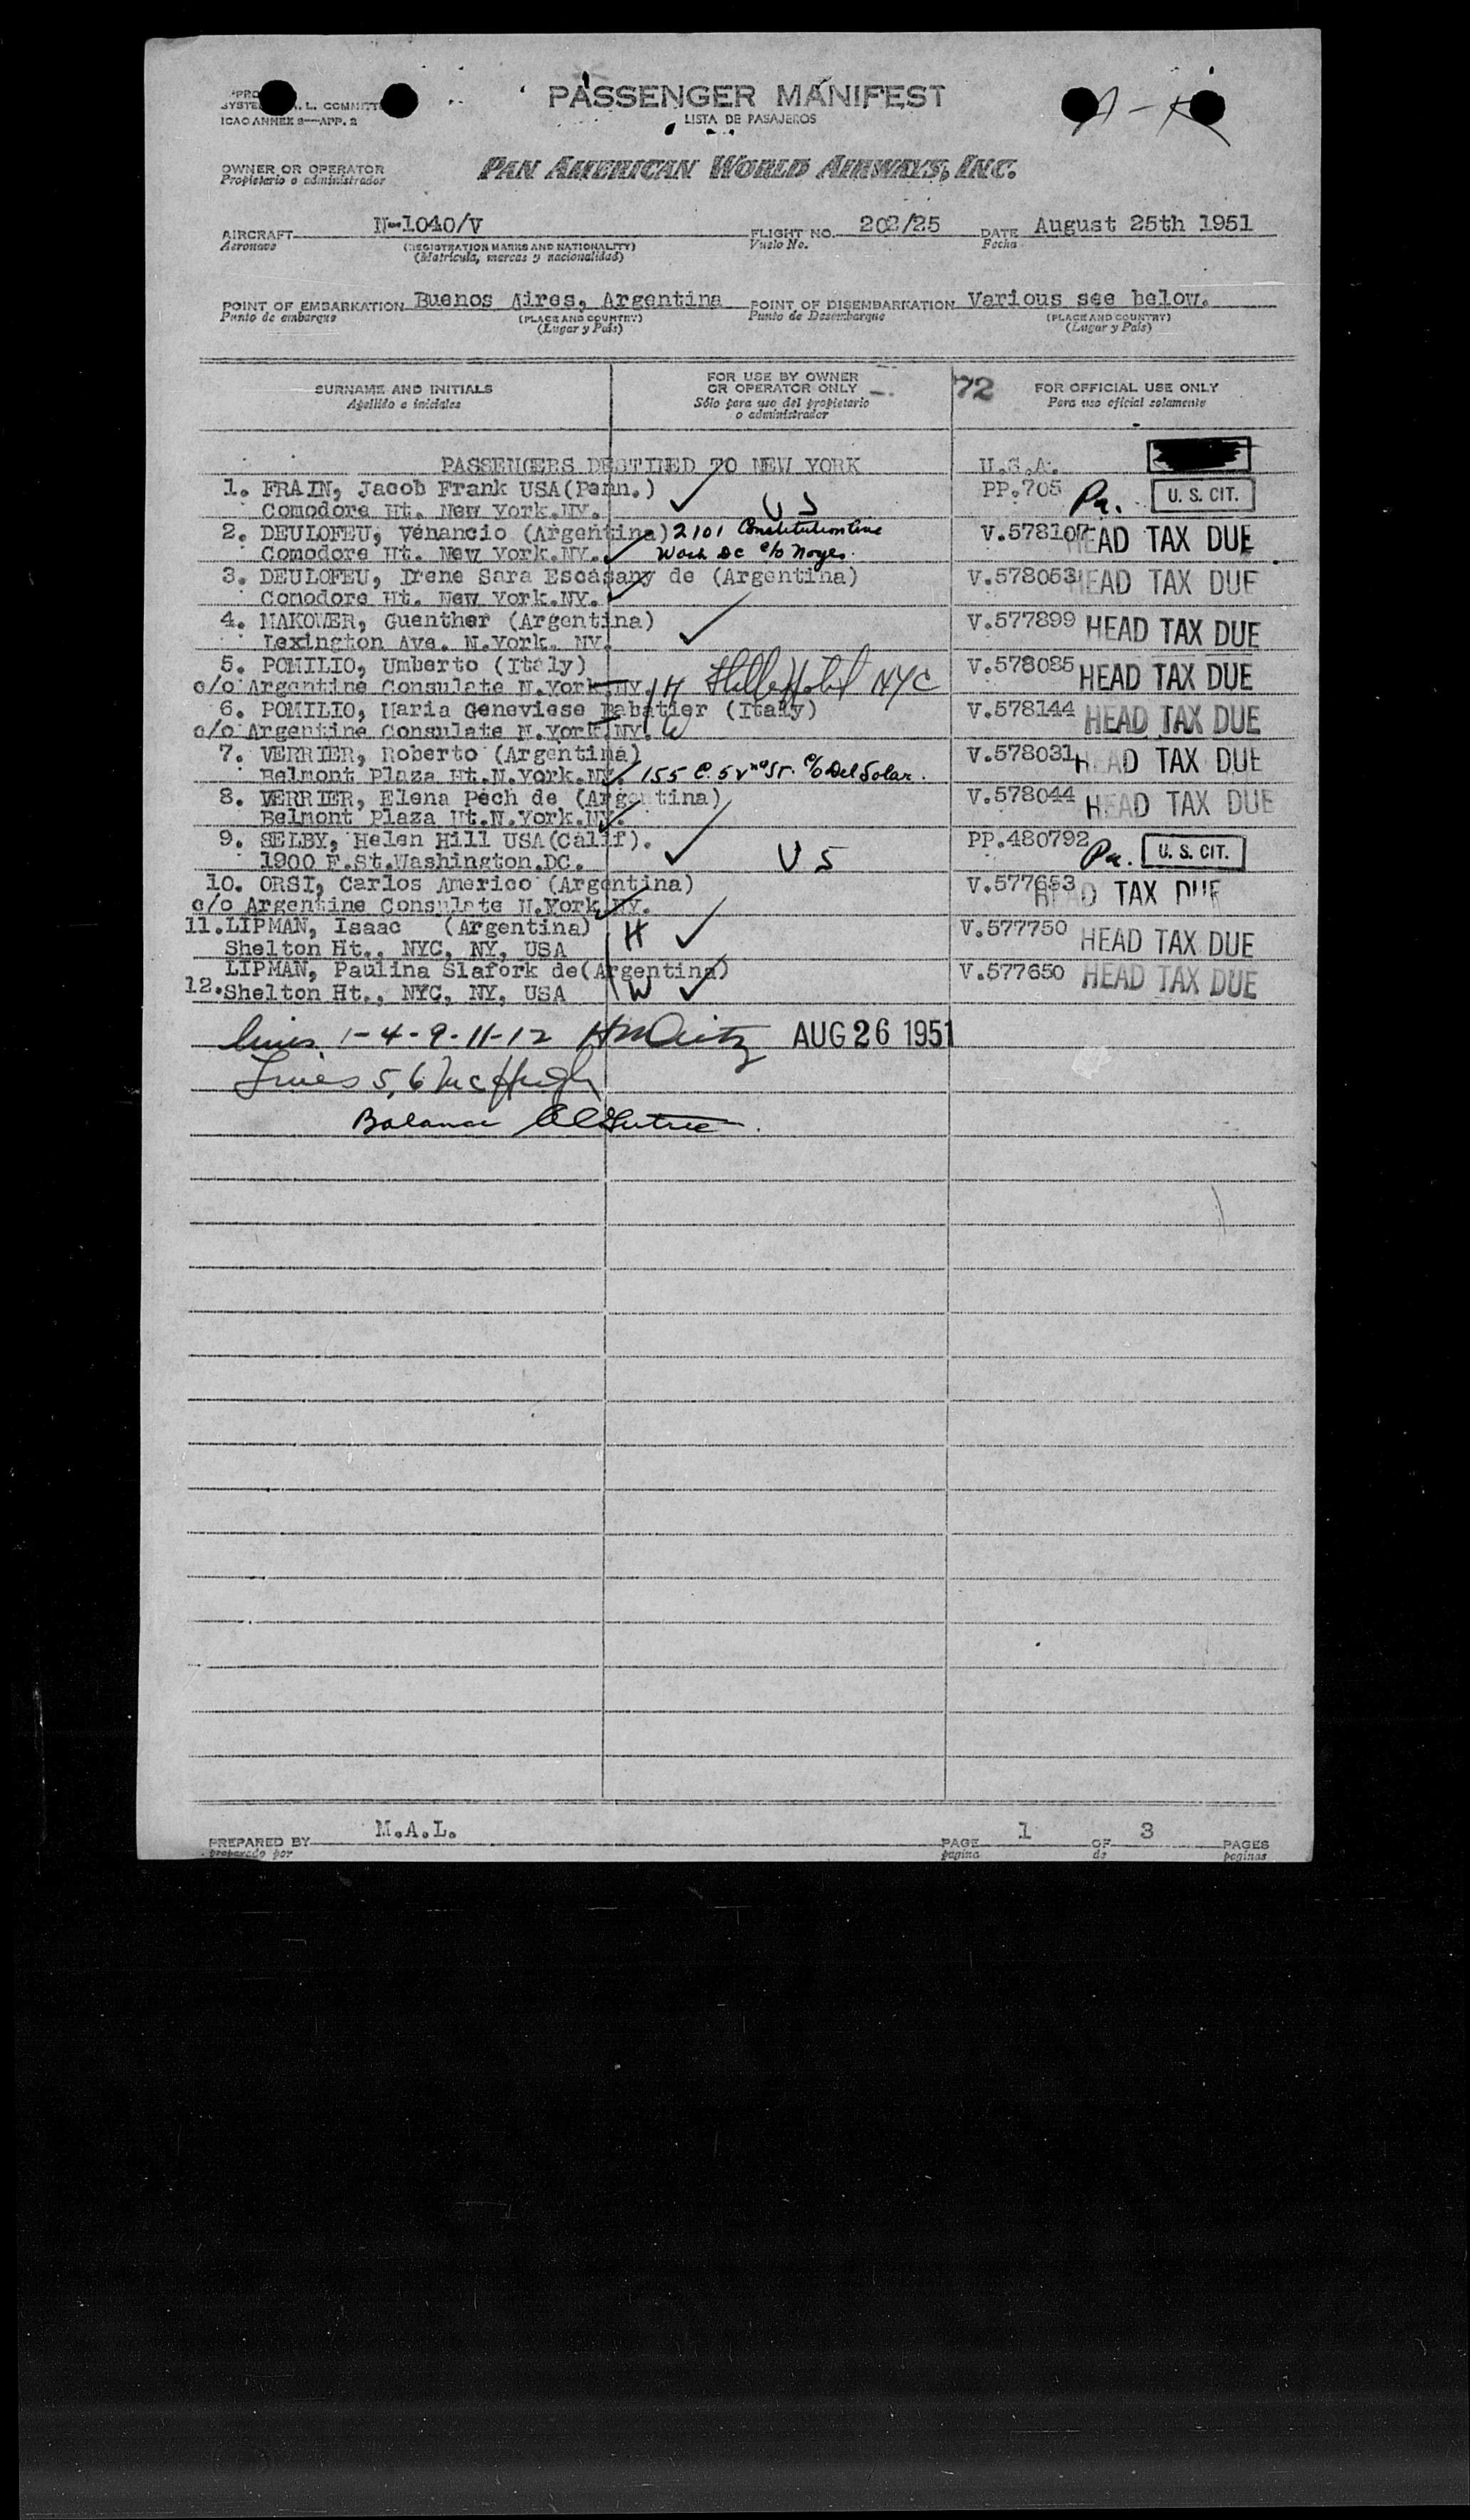 PASSENGER MANIFEST
LISTA DE PASAJEROS
ICAO ANNEX 9—APP. 2
OWNER OR OPERATOR
Propietario o administrador
PAN AMERICAN WORLD AIRWAYS, INC.
AIRCRAFT N-1040/V FLIGHT NO. 202/25 DATE August 25th 1951
Aeronave (REGISTRATION MARKS AND NATIONALITY) Vuelo No. Fecha
(Matrícula, marcas y nacionalidad)
POINT OF EMBARKATION Buenos Aires, Argentina POINT OF DISEMBARKATION Various see below.
Punto de embarque (PLACE AND COUNTRY) Punto de Desembarque (PLACE AND COUNTRY)
(Lugar y País) (Lugar y País)
SURNAME AND INITIALS FOR USE BY OWNER OR OPERATOR ONLY 72 FOR OFFICIAL USE ONLY
Apellido e iniciales Sólo para uso del propietario o administrador Para uso oficial solamente
PASSENGERS DESTINED TO NEW YORK U.S.A.
1. FRAIN, Jacob Frank USA(Penn.) US PP.705 Pa. U. S. CIT.
Comodore Ht. New York.NY.
2. DEULOFEU, Venancio (Argentina) 2101 Constitution Ave V.578107 HEAD TAX DUE
Comodore Ht. New York.NY. Wash DC c/o Noyes.
3. DEULOFEU, Irene Sara Escasany de (Argentina) V.578053 HEAD TAX DUE
Comodore Ht. New York.NY.
4. MAKOWER, Guenther (Argentina) V.577899 HEAD TAX DUE
Lexington Ave. N.York. NY.
5. POMILIO, Umberto (Italy) V.578085 HEAD TAX DUE
c/o Argentine Consulate N.York.NY. H Hotel NYC
6. POMILIO, Maria Geneviese Rabatier (Italy) V.578144 HEAD TAX DUE
c/o Argentine Consulate N.York.NY. W
7. VERRIER, Roberto (Argentina) V.578031 HEAD TAX DUE
Belmont Plaza Ht.N.York.NY. 155 E. 52nd St. c/o Del Solar.
8. VERRIER, Elena Pech de (Argentina) V.578044 HEAD TAX DUE
Belmont Plaza Ht.N.York.NY.
9. SELBY, Helen Hill USA(Calif). US PP.480792 Pa. U. S. CIT.
1900 F.St.Washington.DC.
10. ORSI, Carlos Americo (Argentina) V.577653 HEAD TAX DUE
c/o Argentine Consulate N.York.NY.
11. LIPMAN, Isaac (Argentina) H V.577750 HEAD TAX DUE
Shelton Ht., NYC, NY, USA
LIPMAN, Paulina Slafork de(Argentina) V.577650 HEAD TAX DUE
12. Shelton Ht., NYC, NY, USA W
Lines 1-4-9-11-12 AUG 26 1951
Lines 5,6 McHugh
Balance
PREPARED BY M.A.L. PAGE 1 OF 3 PAGES
preparado por pagina de paginas